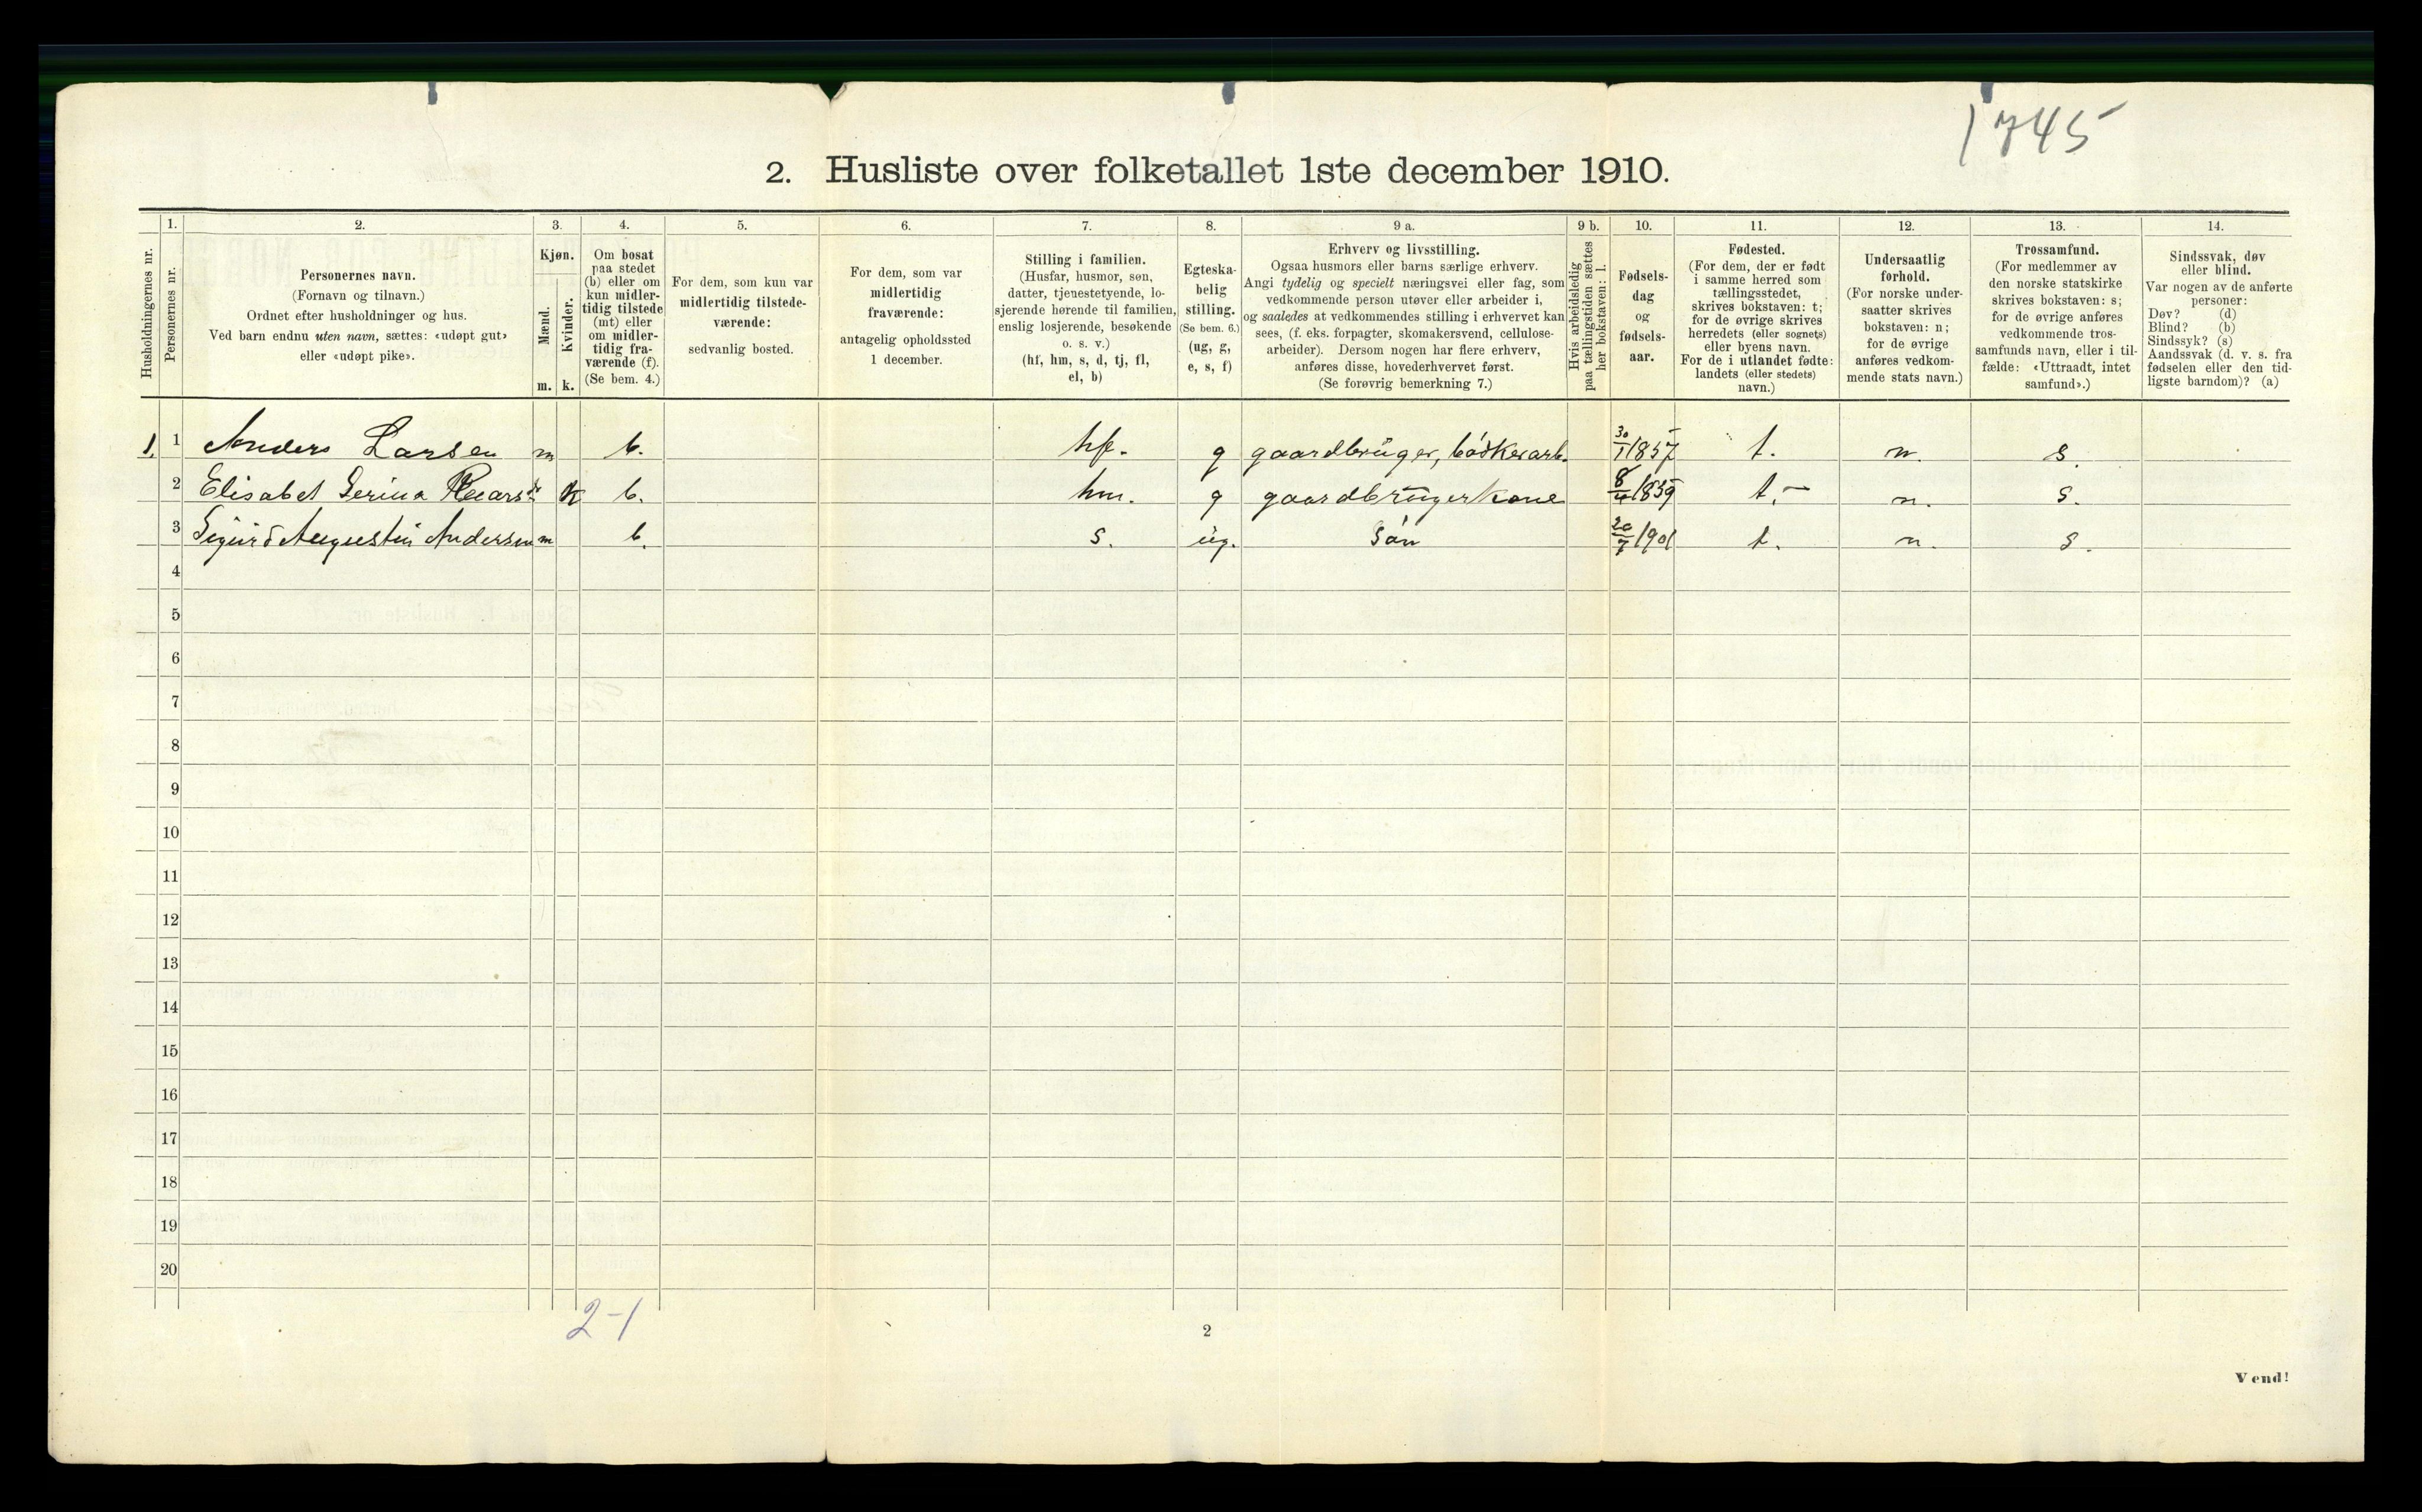 1745
2. Husliste over folketallet 1ste december 1910.
Husholdningernes nr.
1.
Personernes nr.
2.
Personernes navn.
(Fornavn og tilnavn.)
Ordnet efter husholdninger og hus.
Ved barn endnu uten navn, sættes: «udøpt gut»
eller «udøpt pike».
3.
Kjøn.
Mænd.
Kvinder.
m. k.
4.
Om bosat
paa stedet
(b) eller om
kun midler-
tidig tilstede
(mt) eller
om midler-
tidig fra-
værende (f).
(Se bem. 4.)
5.
For dem, som kun var
midlertidig tilstede-
værende:
sedvanlig bosted.
6.
For dem, som var
midlertidig
fraværende:
antagelig opholdssted
1 december.
7.
Stilling i familien.
(Husfar, husmor, søn,
datter, tjenestetyende, lo-
sjerende hørende til familien,
enslig losjerende, besøkende
o. s. v.)
(hf, hm, s, d, tj, fl,
el, b)
8.
Egteska-
belig
stilling.
(Se bem. 6.)
(ug, g,
e, s, f)
9 a.
Erhverv og livsstilling.
Ogsaa husmors eller barns særlige erhverv.
Angi tydelig og specielt næringsvei eller fag, som
vedkommende person utøver eller arbeider i,
og saaledes at vedkommendes stilling i erhvervet kan
sees, (f. eks. forpagter, skomakersvend, cellulose-
arbeider). Dersom nogen har flere erhverv,
anføres disse, hovederhvervet først.
(Se forøvrig bemerkning 7.)
9 b.
Hvis arbeidsledig
paa tællingstiden sættes
her bokstaven: l.
10.
Fødsels-
dag
og
fødsels-
aar.
11.
Fødested.
(For dem, der er født
i samme herred som
tællingsstedet,
skrives bokstaven: t;
for de øvrige skrives
herredets (eller sognets)
eller byens navn.
For de i utlandet fødte:
landets (eller stedets)
navn.)
12.
Undersaatlig
forhold.
(For norske under-
saatter skrives
bokstaven: n;
for de øvrige
anføres vedkom-
mende stats navn.)
13.
Trossamfund.
(For medlemmer av
den norske statskirke
skrives bokstaven: s;
for de øvrige anføres
vedkommende tros-
samfunds navn, eller i til-
fælde: «Uttraadt, intet
samfund».)
14.
Sindssvak, døv
eller blind.
Var nogen av de anførte
personer:
Døv? (d)
Blind? (b)
Sindssyk? (s)
Aandssvak (d. v. s. fra
fødselen eller den tid-
ligste barndom)? (a)
1. 1 Anders Larsen m b. hf. g gaardbruger, bødkerarb. 30/1 1857 t. n. s.
2 Elisabet Serina k b. hm. g gaardbrugerkone 1859 t. n. s.
3 Sigurd Augustin Andersen m b. s. ug. søn 20/7 1901 t. n. s.
4
5
6
7
8
9
10
11
12
13
14
15
16
17
18
19
20
2-1
2
Vend!